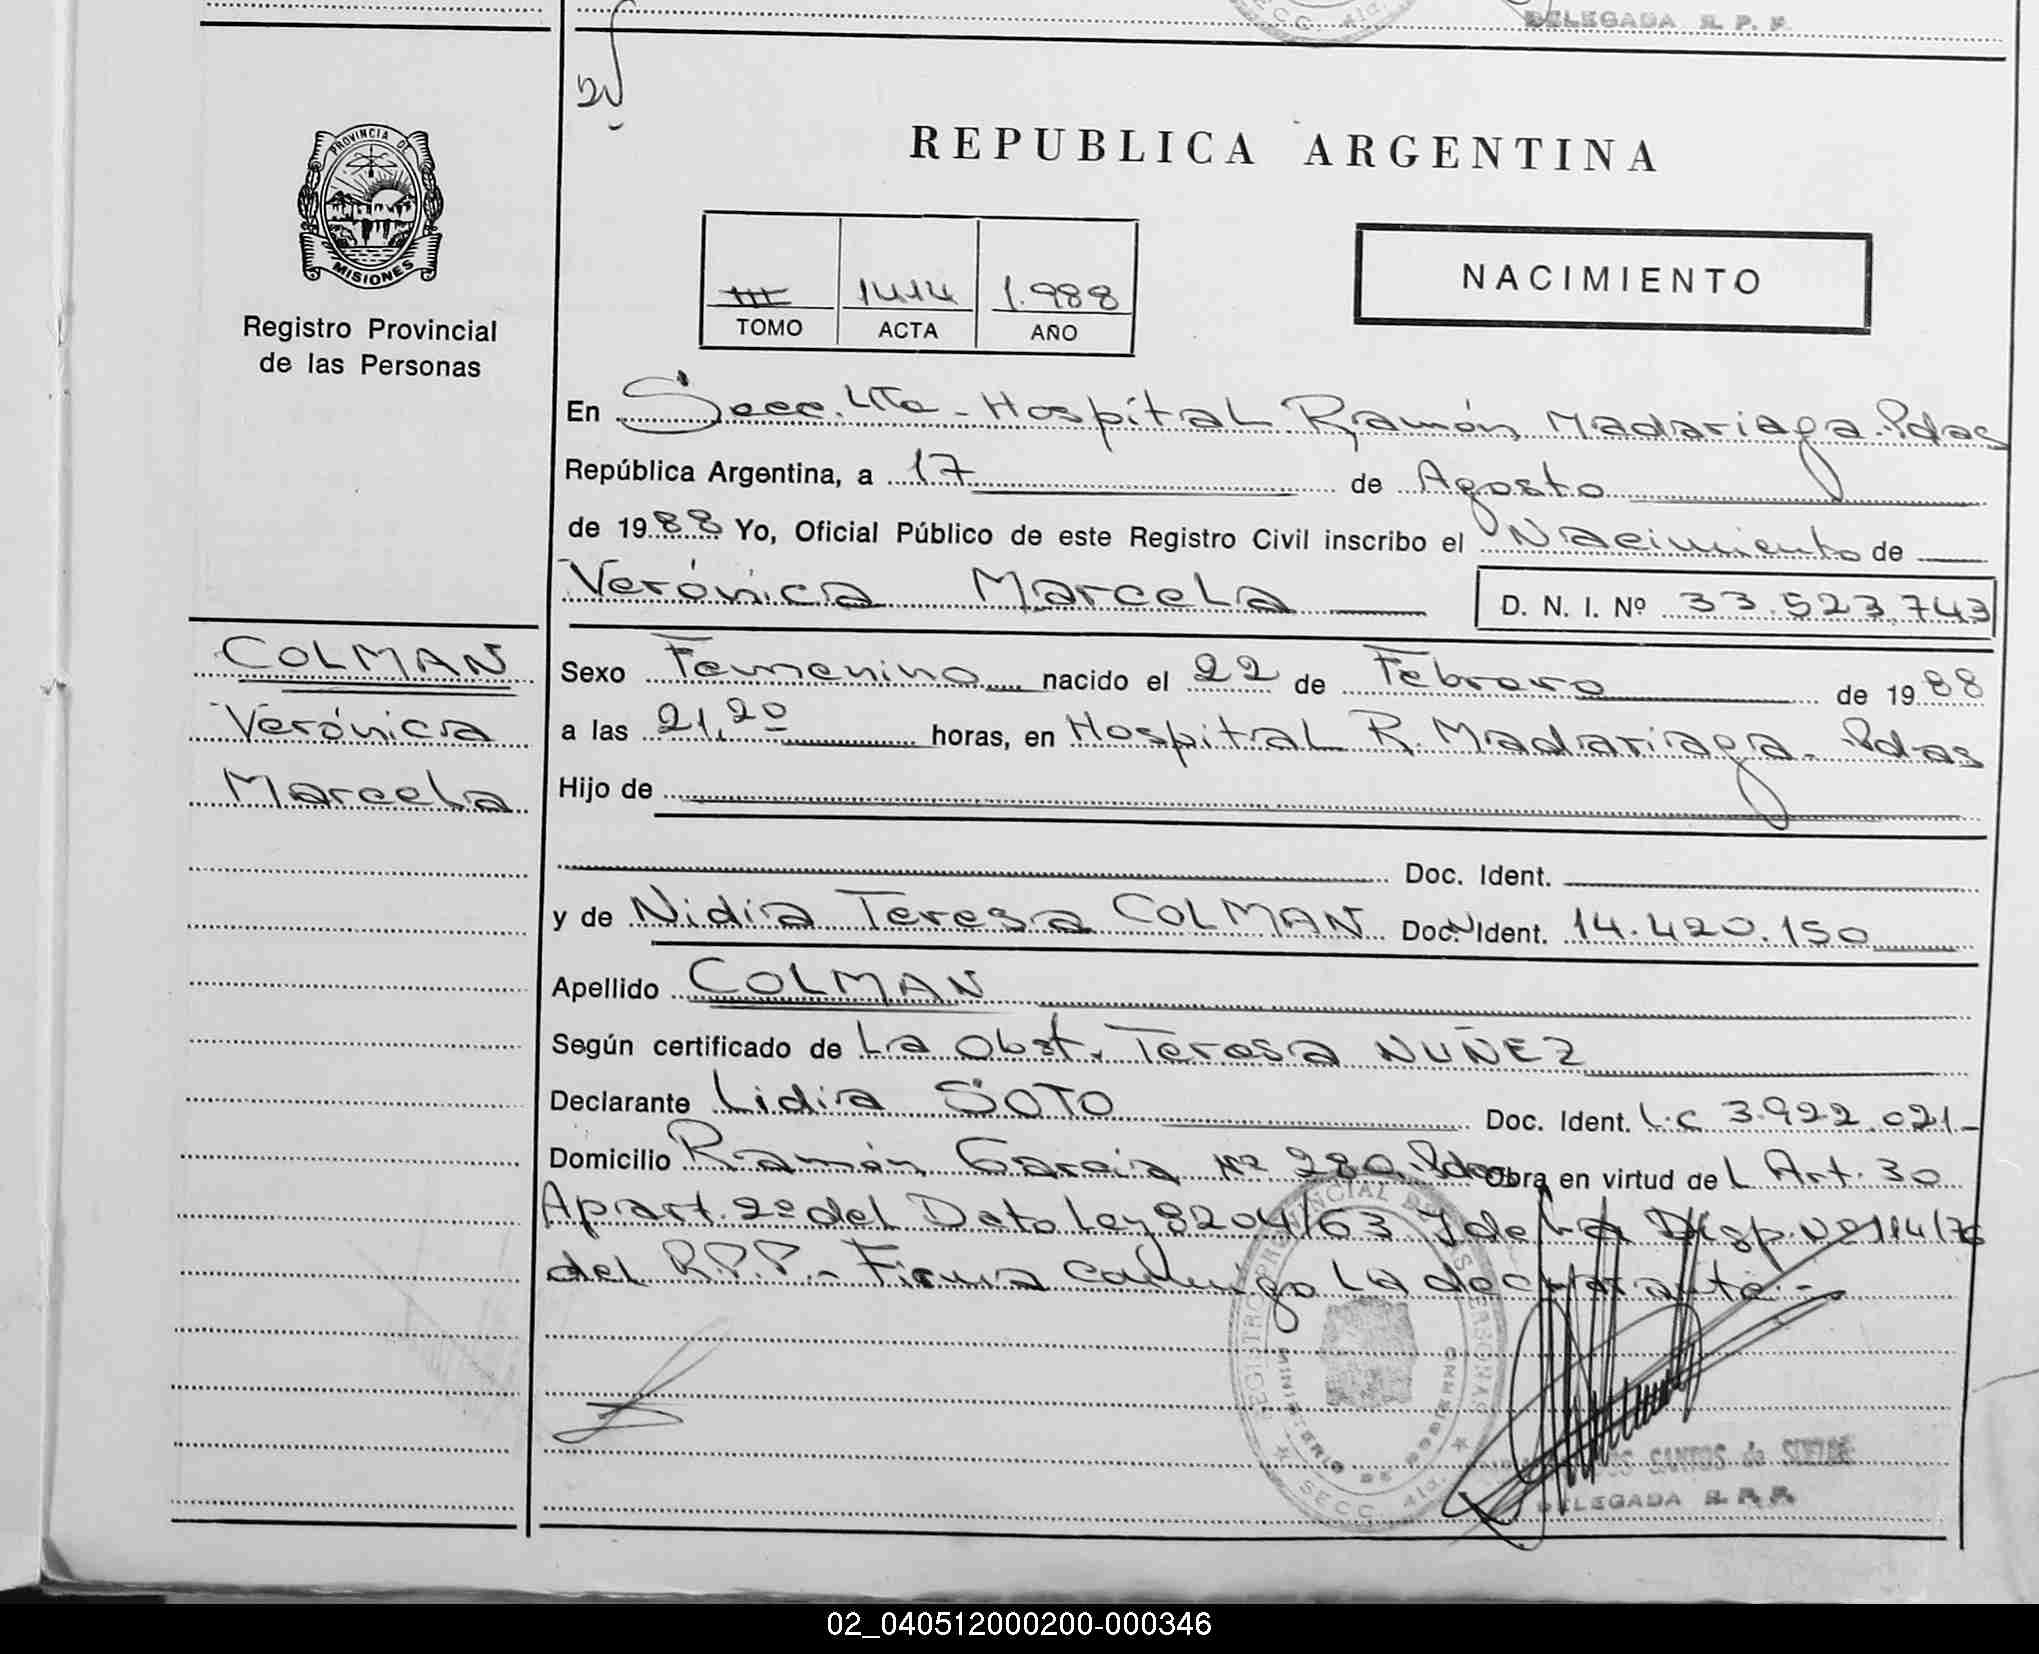 DELEGADA R. P. P.
SECC. 4ta.
PROVINCIA DE
MISIONES
Registro Provincial
de las Personas
REPUBLICA ARGENTINA
NACIMIENTO
III 1414 1.988
TOMO ACTA AÑO
En Secc. 4ta - Hospital Ramón Madariaga. Pdas
República Argentina, a 17 de Agosto
de 1988 Yo, Oficial Público de este Registro Civil inscribo el Nacimiento de
Verónica Marcela D. N. I. Nº 33.523.743
COLMAN
Verónica
Marcela
Sexo Femenino nacido el 22 de Febrero de 1988
a las 21,20 horas, en Hospital R. Madariaga - Pdas
Hijo de
Doc. Ident.
y de Nidia Teresa COLMAN Doc. Ident. 14.420.150
Apellido COLMAN
Según certificado de La Obst. Teresa NUÑEZ
Declarante Lidia SOTO Doc. Ident. L.C 3.922.021-
Domicilio Ramón Garcia Nº 280. Pdas Obra en virtud del Art. 30
Apart. 2º del Dcto Ley 8204/63 y de la Disp. Nº 114/76
del R.P.P. - Firma conmigo la declarante. -
REGISTRO PROVINCIAL DE LAS PERSONAS
MINISTERIO DE GOBIERNO
SECC. 4ta.
SANTOS de
DELEGADA R. P. P.
02_040512000200-000346